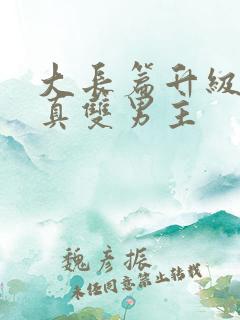 大長篇升級
真雙男主
魏彥振
未经同意禁止转载